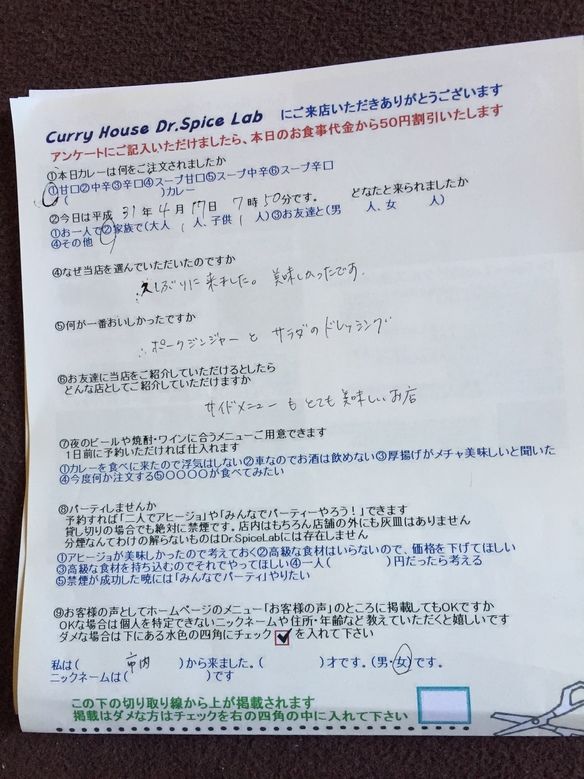 Curry House Dr.Spice Lab にご来店いただきありがとうございます
アンケートにご記入いただけましたら、本日のお食事代金から50円割引いたします
①本日カレーは何をご注文されましたか
①甘口②中辛③辛口④スープ甘口⑤スープ中辛⑥スープ辛口
( )カレー
②今日は平成 31 年 4 月 17 日 7 時 50 分です。 どなたと来られましたか
①お一人で②家族で(大人 1 人、子供 1 人)③お友達と(男 人、女 人)
④その他
④なぜ当店を選んでいただいたのですか
久しぶりに来ました。美味しかったです。
⑤何が一番おいしかったですか
ポークジンジャーと サラダのドレッシング
⑥お友達に当店をご紹介していただけるとしたら
どんな店としてご紹介していただけますか
サイドメニューもとても美味しいお店
⑦夜のビールや焼酎・ワインに合うメニューご用意できます
1日前に予約いただければ仕入れます
①カレーを食べに来たので浮気はしない②車なのでお酒は飲めない③厚揚げがメチャ美味しいと聞いた
④今度何か注文する⑤〇〇〇〇が食べてみたい
⑧パーティしませんか
予約すれば「二人でアヒージョ」や「みんなでパーティーやろう!」できます
貸し切りの場合でも絶対に禁煙です。店内はもちろん店舗の外にも灰皿はありません
分煙なんてわけの解らないものはDr.SpiceLabには存在しません
①アヒージョが美味しかったので考えておく②高級な食材はいらないので、価格を下げてほしい
③高級な食材を持ち込むのでそれでやってほしい④一人( )円だったら考える
⑤禁煙が成功した暁には「みんなでパーティ」やりたい
⑨お客様の声としてホームページのメニュー「お客様の声」のところに掲載してもOKですか
OKな場合は個人を特定できないニックネームや住所・年齢など教えていただくと嬉しいです
ダメな場合は下にある水色の四角にチェック を入れて下さい
私は( 市内 )から来ました。( )才です。(男・女)です。
ニックネームは( )です
この下の切り取り線から上が掲載されます
掲載はダメな方はチェックを右の四角の中に入れて下さい